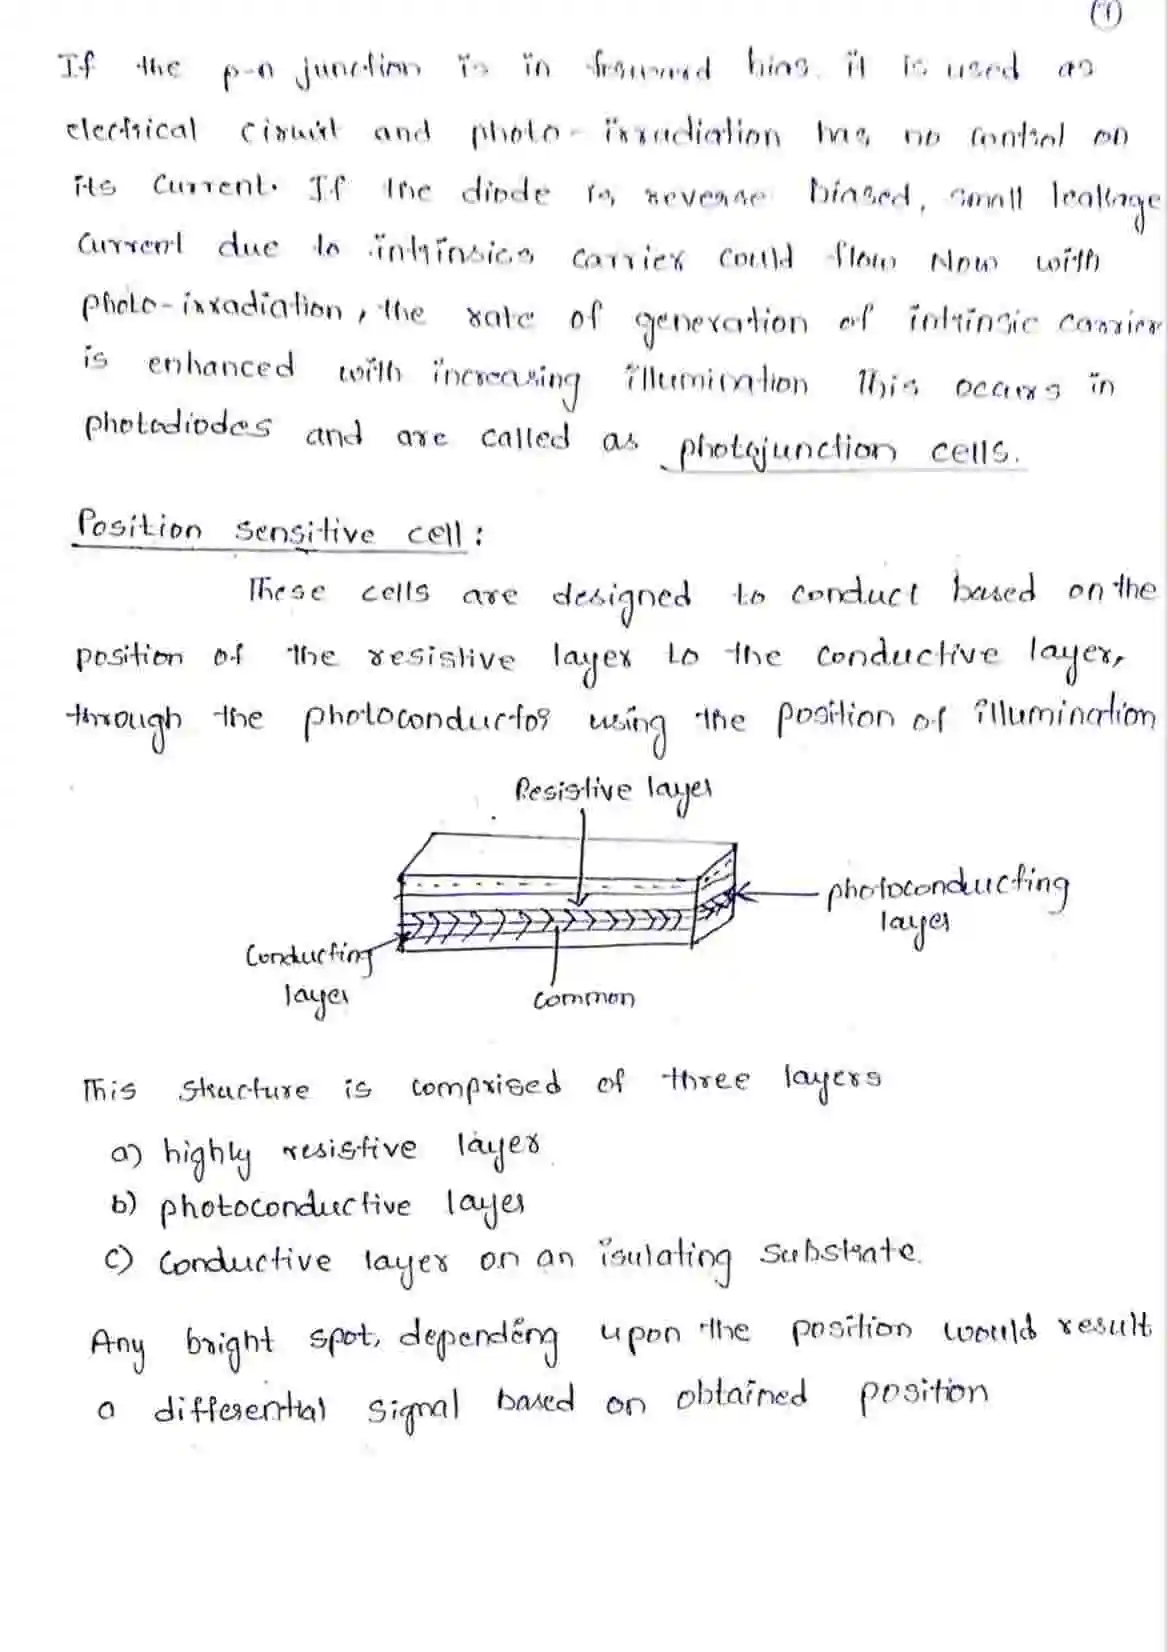 If the p-n junction is in forward bias. it is used as
electrical ciruit and photo-irradiation has no control on
its current. If the diode is reverse biased, small leakage
current due to intrinsics carrier could flow Now with
photo-irradiation, the rate of generation of intrinsic carrier
is enhanced with increasing illumination This occurs in
photodiodes and are called as photojunction cells.
Position sensitive cell:
These cells are designed to conduct based on the
position of the resistive layer to the conductive layer,
through the photoconductor using the position of illumination
Resistive layer
photoconducting
layer
Conducting
layer
common
This structure is comprised of three layers
a) highly resistive layer
b) photoconductive layer
c) conductive layer on an isulating substrate.
Any bright spot, depending upon the position would result
a differential signal based on obtained position